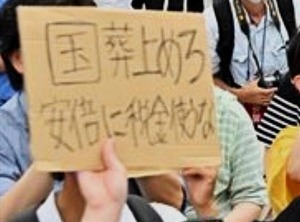 国葬止めろ
安倍に税金使うな